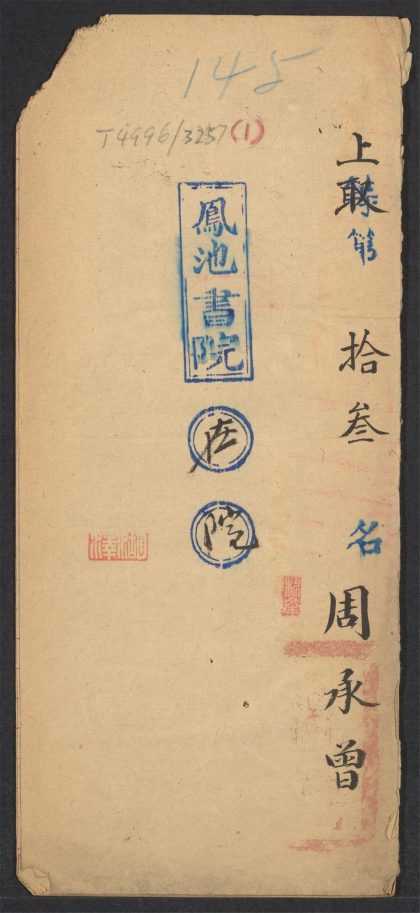 145
T4996/3257(1)
上取第拾叁名周承曾
鳳池書院
在院